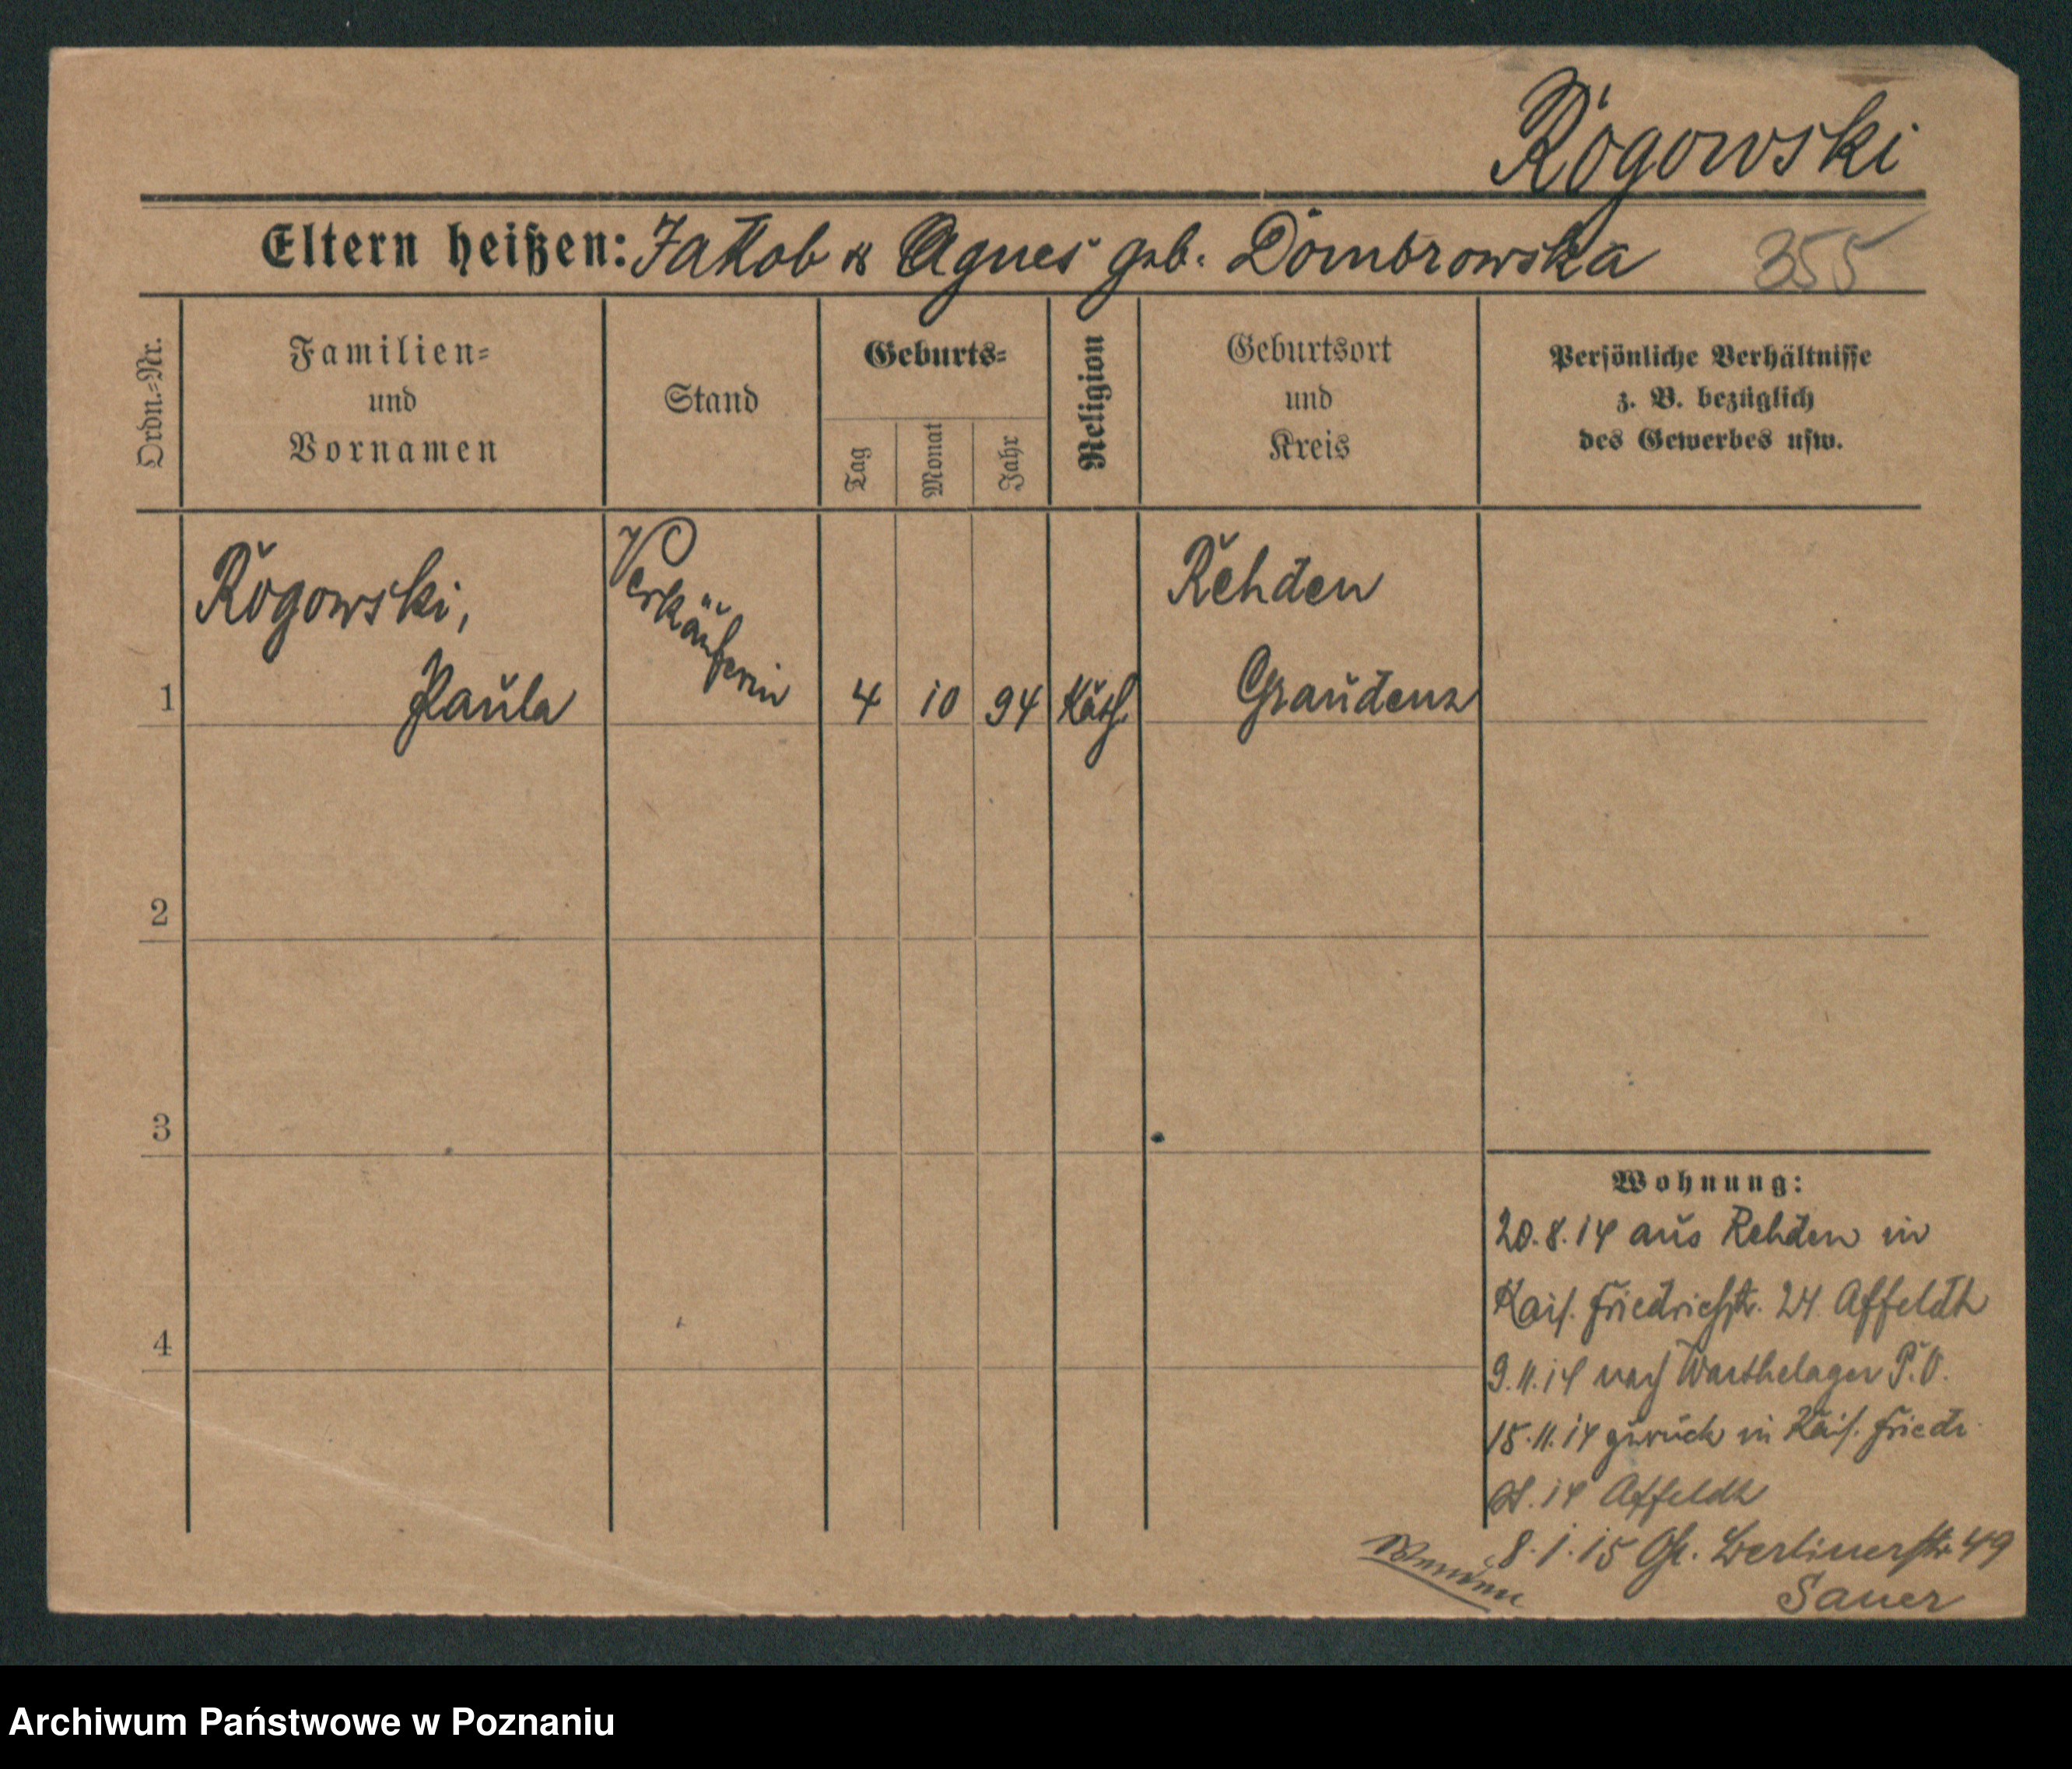 Rogowski
Eltern heißen: Jakob & Agnes geb. Dombrowska 355
Ordn.=Nr.
Familien=
und
Vornamen
Stand
Geburts=
Tag
Monat
Jahr
Religion
Geburtsort
und
Kreis
Persönliche Verhältnisse
z. B. bezüglich
des Gewerbes usw.
1
Rogowski,
Paula
Verkäuferin
4
10
94
Kath.
Rehden
Graudenz
2
3
4
Wohnung:
20.8.14 aus Rehden in
Kais. Friedrichstr. 24. Affeldt
9.11.14 nach Warthelager P.O.
15.11.14 zurück in Kais. Friedr.
14 Affeldt
8.1.15 Gl. Berlinerstr. 49
Sauer
Archiwum Państwowe w Poznaniu